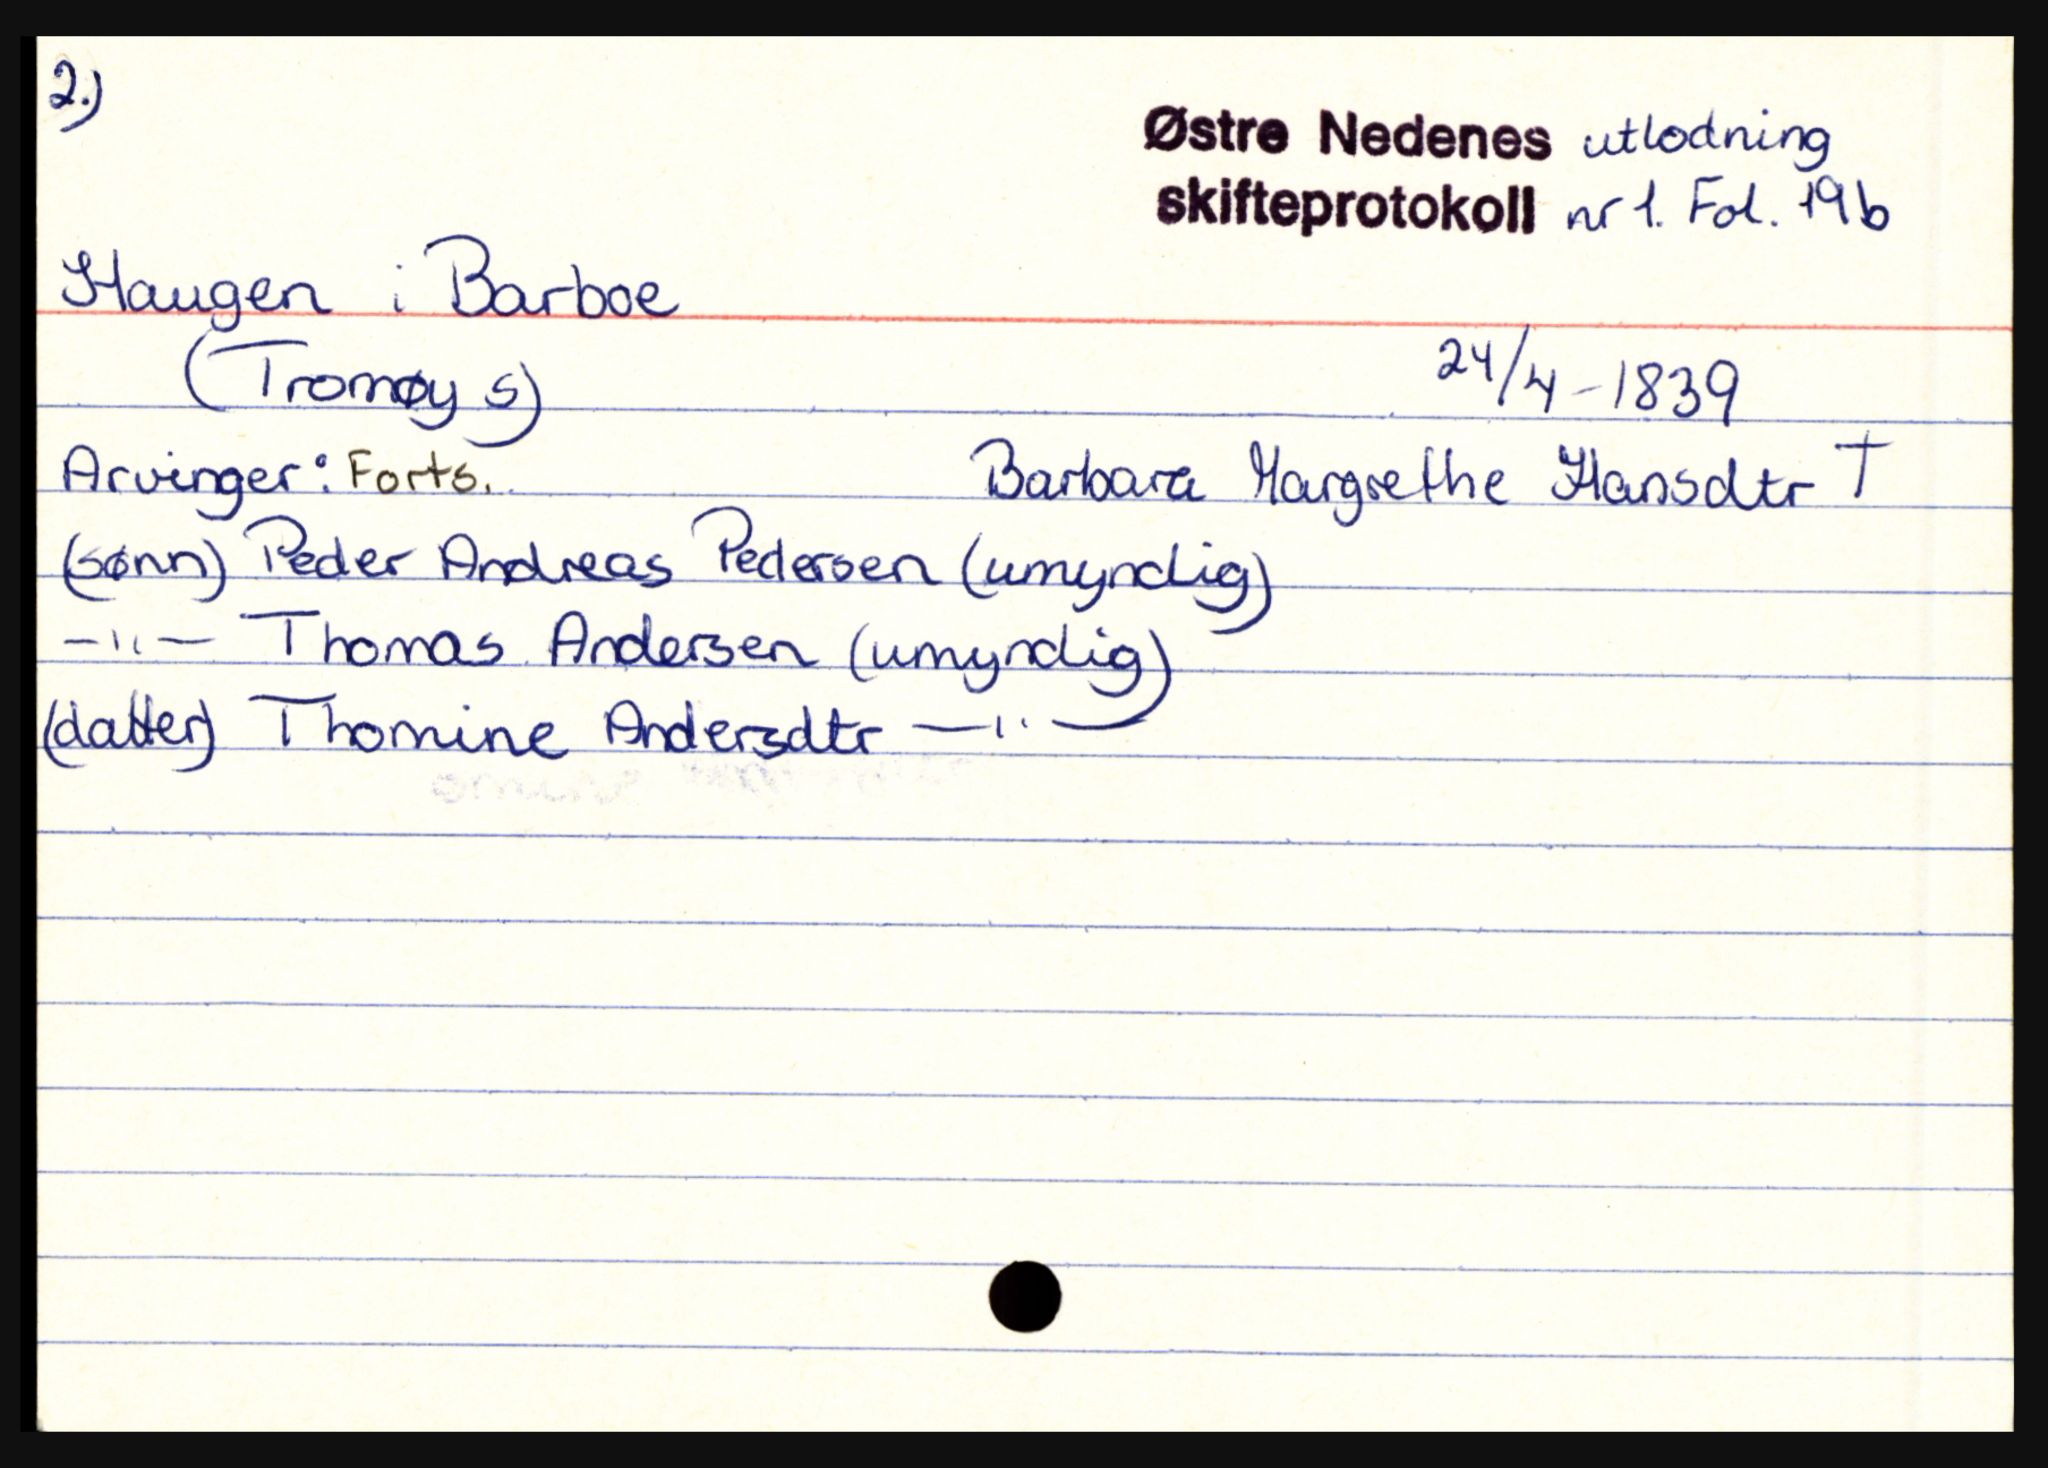 2.)
Østre Nedenes utlodning
skifteprotokoll nr 1. Fol. 19b
Haugen i Barboe
(Tromøy s)
24/4-1839
Arvinger: Forts. Barbara Margrethe Hansdtr †
(sønn) Peder Andreas Pedersen (umyndig)
-"- Thomas Andersen (umyndig)
(datter) Thomine Andersdtr -"-